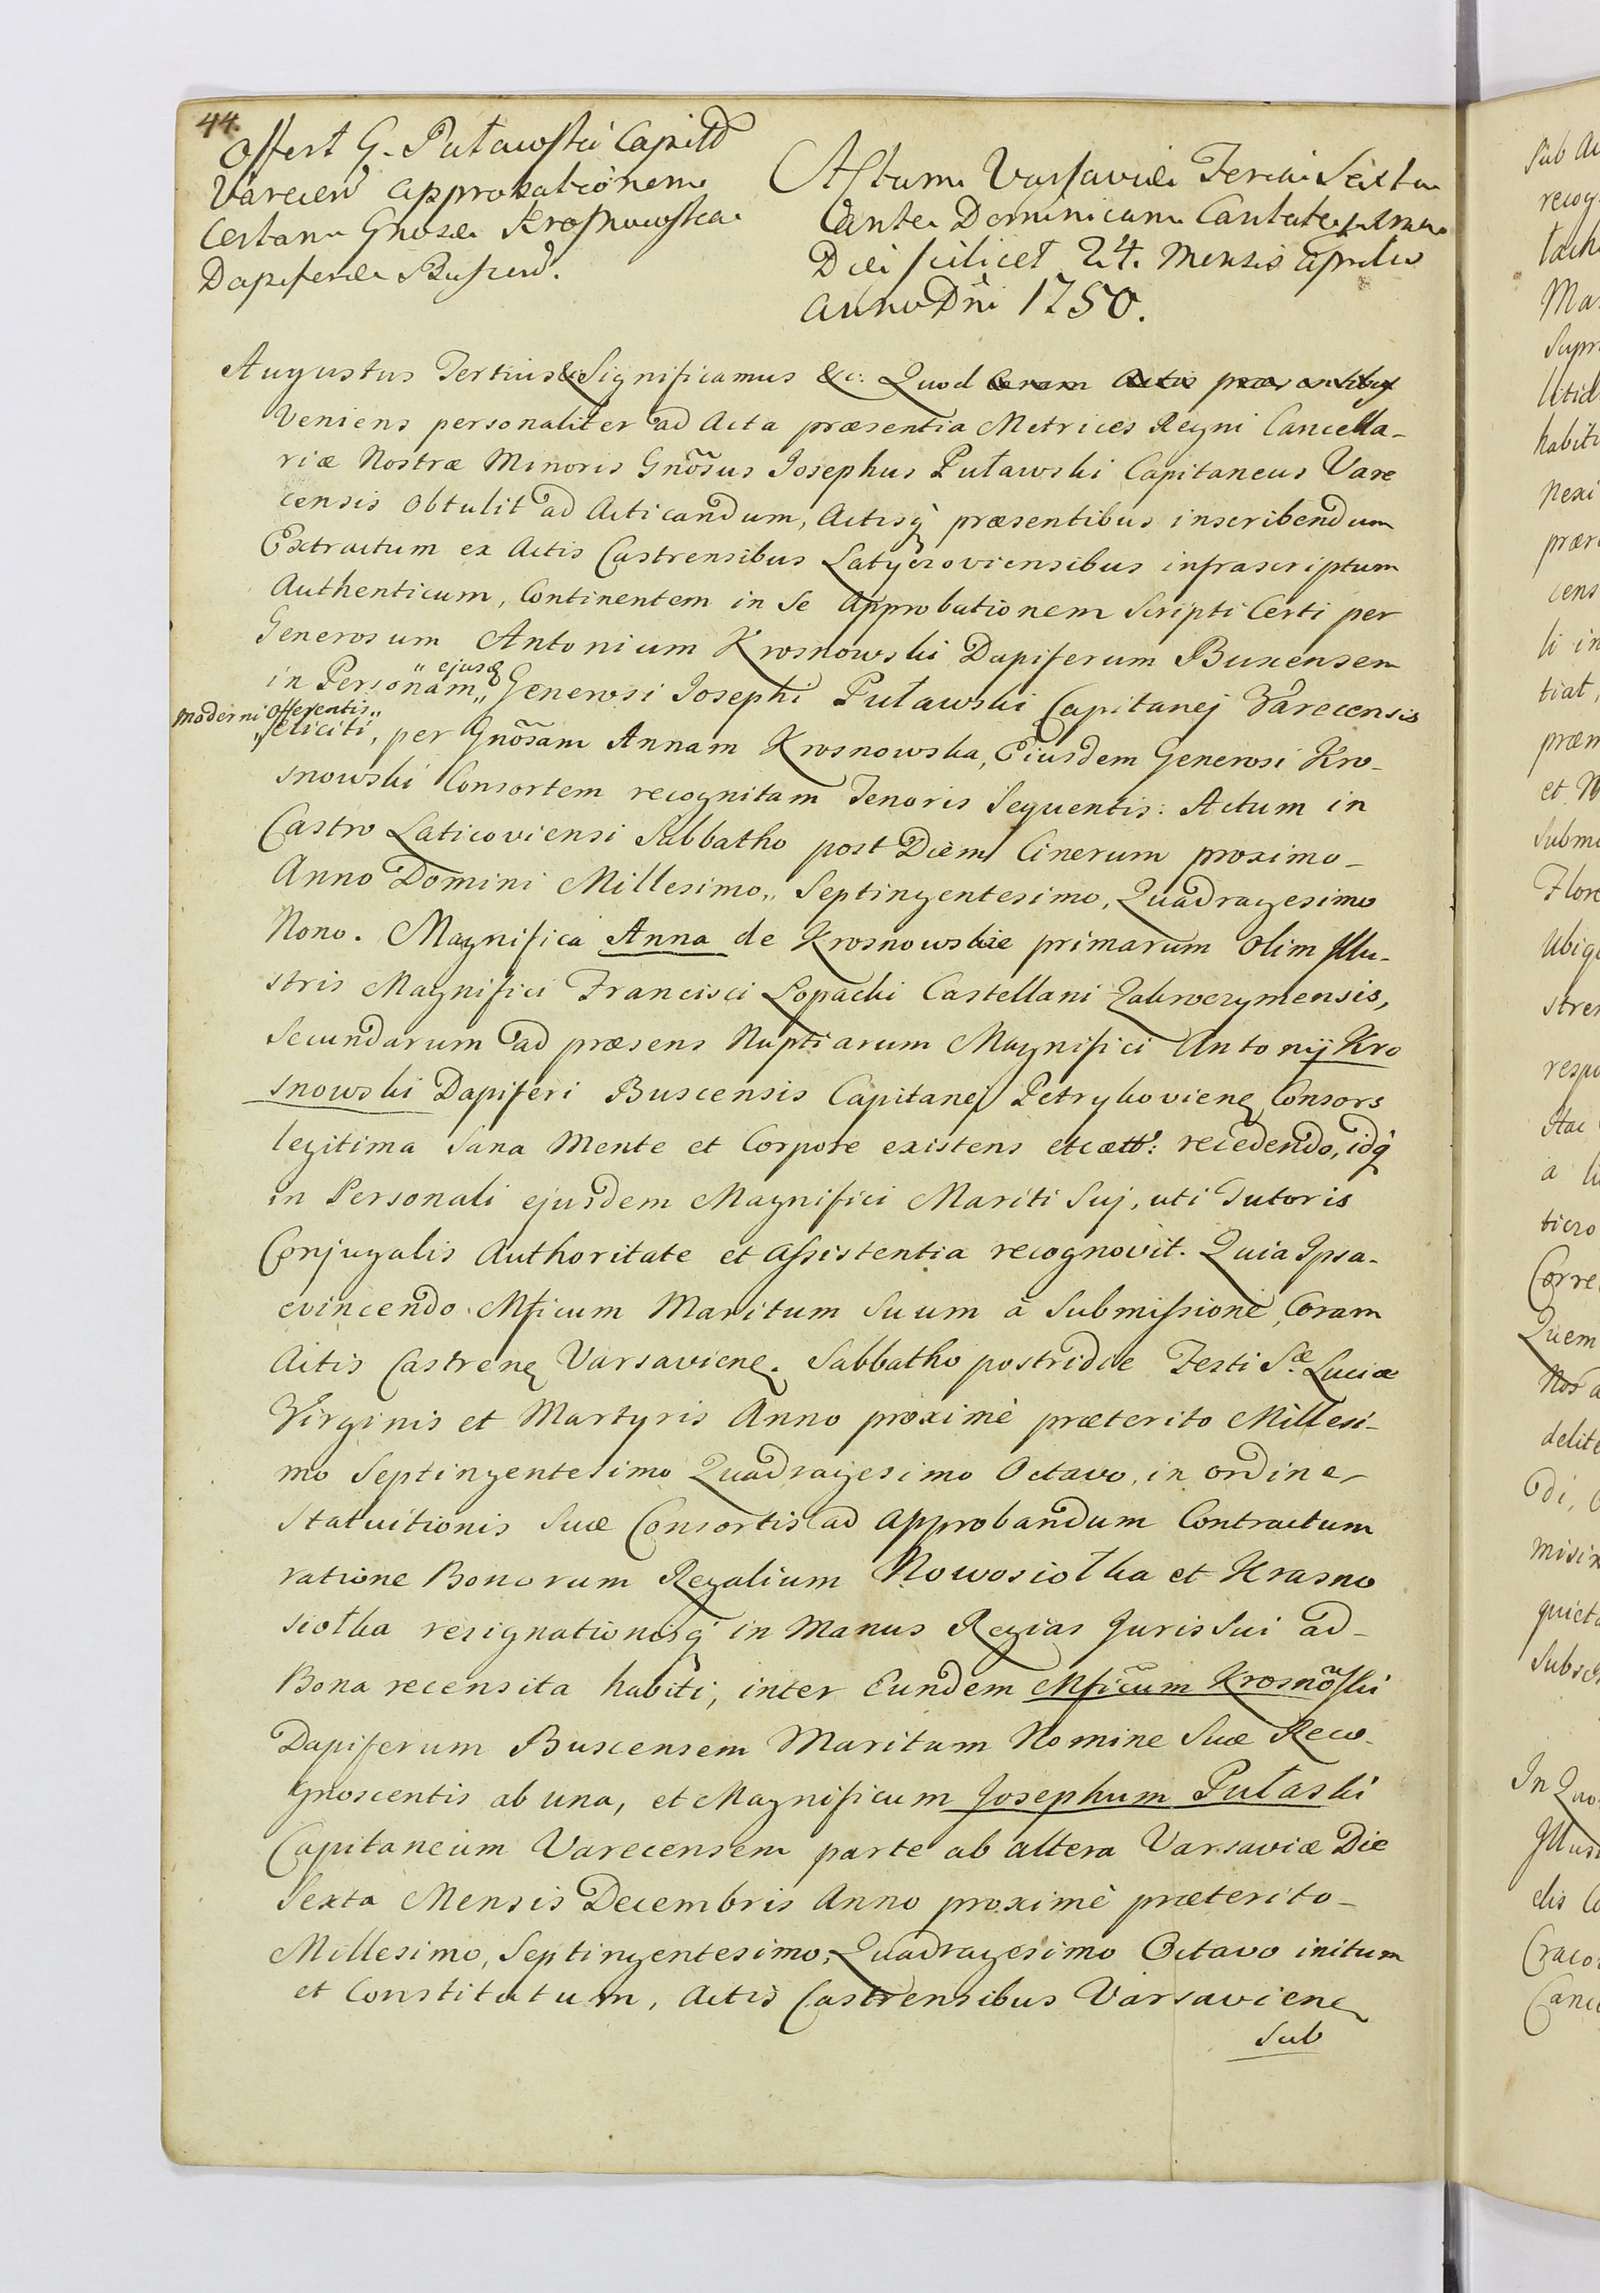 44.
Offert G. Puławski Capitꝰ
Varecen̄ approbationem
Certam Gnosæ Krosnowska
Dapiferæ Buscen̄.
Actum Varsaviæ Feria Sexta
ante Dominicam Cantate proxima
Die scilicet 24. Mensis Aprilis
Anno Dn̄i 1750.
Augustus Tertius &c Significamus &c: Quod Coram Actis præsentibus
Veniens personaliter ad Acta præsentia Metrices Regni Cancella-
riæ Nostræ Minoris Gnõsus Josephus Puławski Capitaneus Vare
censis obtulit ad Acticandum, Actisq̀ præsentibus inscribendum
Extractum ex Actis Castrensibus Latyczoviensibus infrascriptum
Authenticum, Continentem in Se Approbationem Scripti Certi per
Generosum Antonium Krosnowski Dapiferum Buscensem
" ejusq̃
in Personam " Generosi Josephi Puławski Capitanej Varecensis
moderni Offerentis "
" feliciti, per Gnõsam Annam Krosnowska, Ejusdem Generosi Kro-
snowski Consortem recognitam Tenoris Sequentis: Actum in
Castro Laticoviensi Sabbatho post Diem Cinerum proximo-
Anno Domini Millesimo,, Septingentesimo, Quadragesimo
Nono. Magnifica Anna de Krosnowskie primarum Olim Illu-
stris Magnifici Francisci Lopacki Castellani Zakroczymensis,
Secundarum ad præsens Nuptiarum Magnifici Antonij Kro
snowski Dapiferi Buscensis Capitanej Petrykovien̄ Consors
legitima Sana Mente et Corpore existens etcætt: recedendo, idq̀
in Personali ejusdem Magnifici Mariti Suj, uti Tutoris
Conjugalis Authoritate et Assistentia recognovit. Quia Ipsa-
evincendo Mficum Maritum Suum à Submissione, Coram
Actis Castren̄ Varsavien̄. Sabbatho postridie Festi Sæ Luciæ
Virginis et Martyris Anno proximè præterito Millesi-
mo Septingentesimo Quadragesimo Octavo, in ordine
Statuitionis Suæ Consortis ad approbandum Contractum
ratione Bonorum Regalium Nowosiołka et Krasno
siołka resignationisq̀ in Manus Regias Juris Sui ad-
Bona recensita habiti, inter Eundem Mficũm Krosnõski
Dapiferum Buscensem Maritum Nomine Suæ Reco-
gnoscentis ab una, et Magnificum Josephum Pułaski
Capitaneum Varecensem parte ab altera Varsaviæ Die
Sexta Mensis Decembris Anno proximè præterito-
Millesimo, Septingentesimo, Quadragesimo Octavo initum
et Constitutum, Actis Castrensibus Varsavien̄
Sub